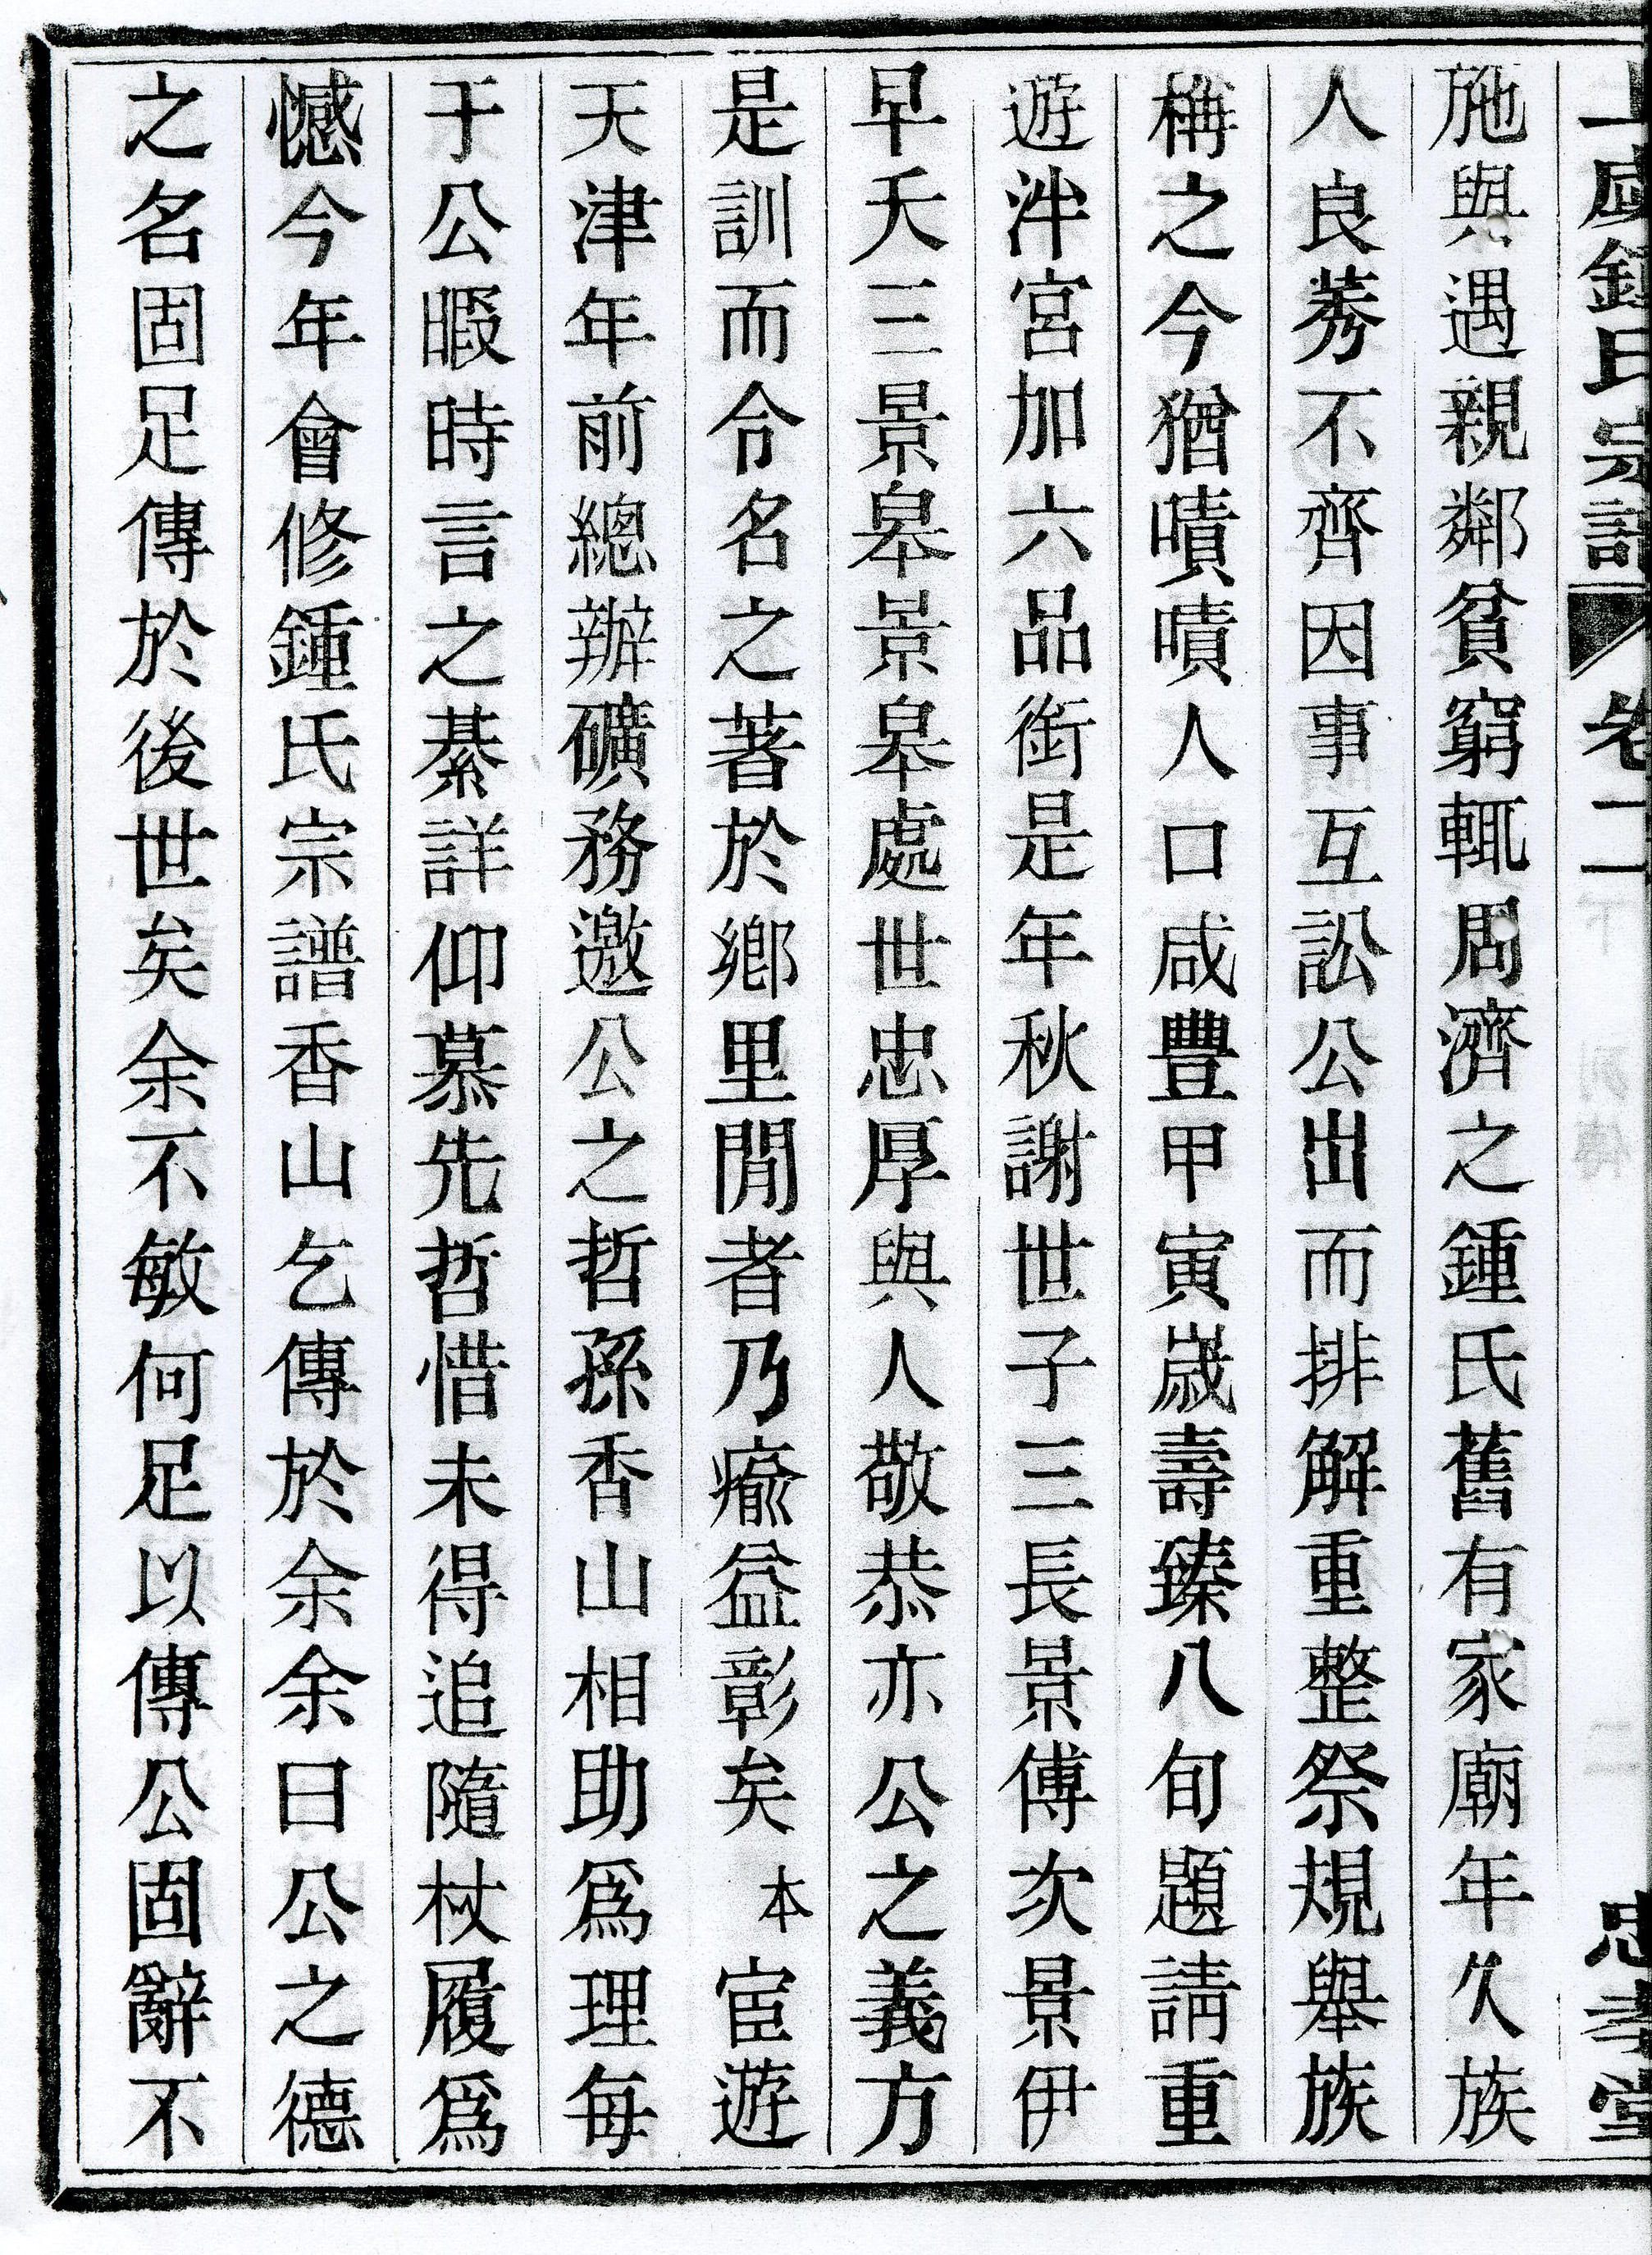 鍾氏宗譜 卷二 忠孝堂
施與遇親鄰貧窮輒周濟之鍾氏舊有家廟年久族
人良莠不齊因事互訟公出而排解重整祭規舉族
稱之今猶嘖嘖人口咸豐甲寅歲壽臻八旬題請重
遊泮宮加六品銜是年秋謝世子三長景傅次景伊
早夭三景皋景皋處世忠厚與人敬恭亦公之義方
是訓而令名之著於鄉里閒者乃瘉益彰矣本宦遊
天津年前總辦礦務邀公之哲孫香山相助爲理每
于公暇時言之綦詳仰慕先哲惜未得追隨杖履爲
憾今年會修鍾氏宗譜香山乞傳於余余曰公之德
之名固足傳於後世矣余不敏何足以傳公固辭不